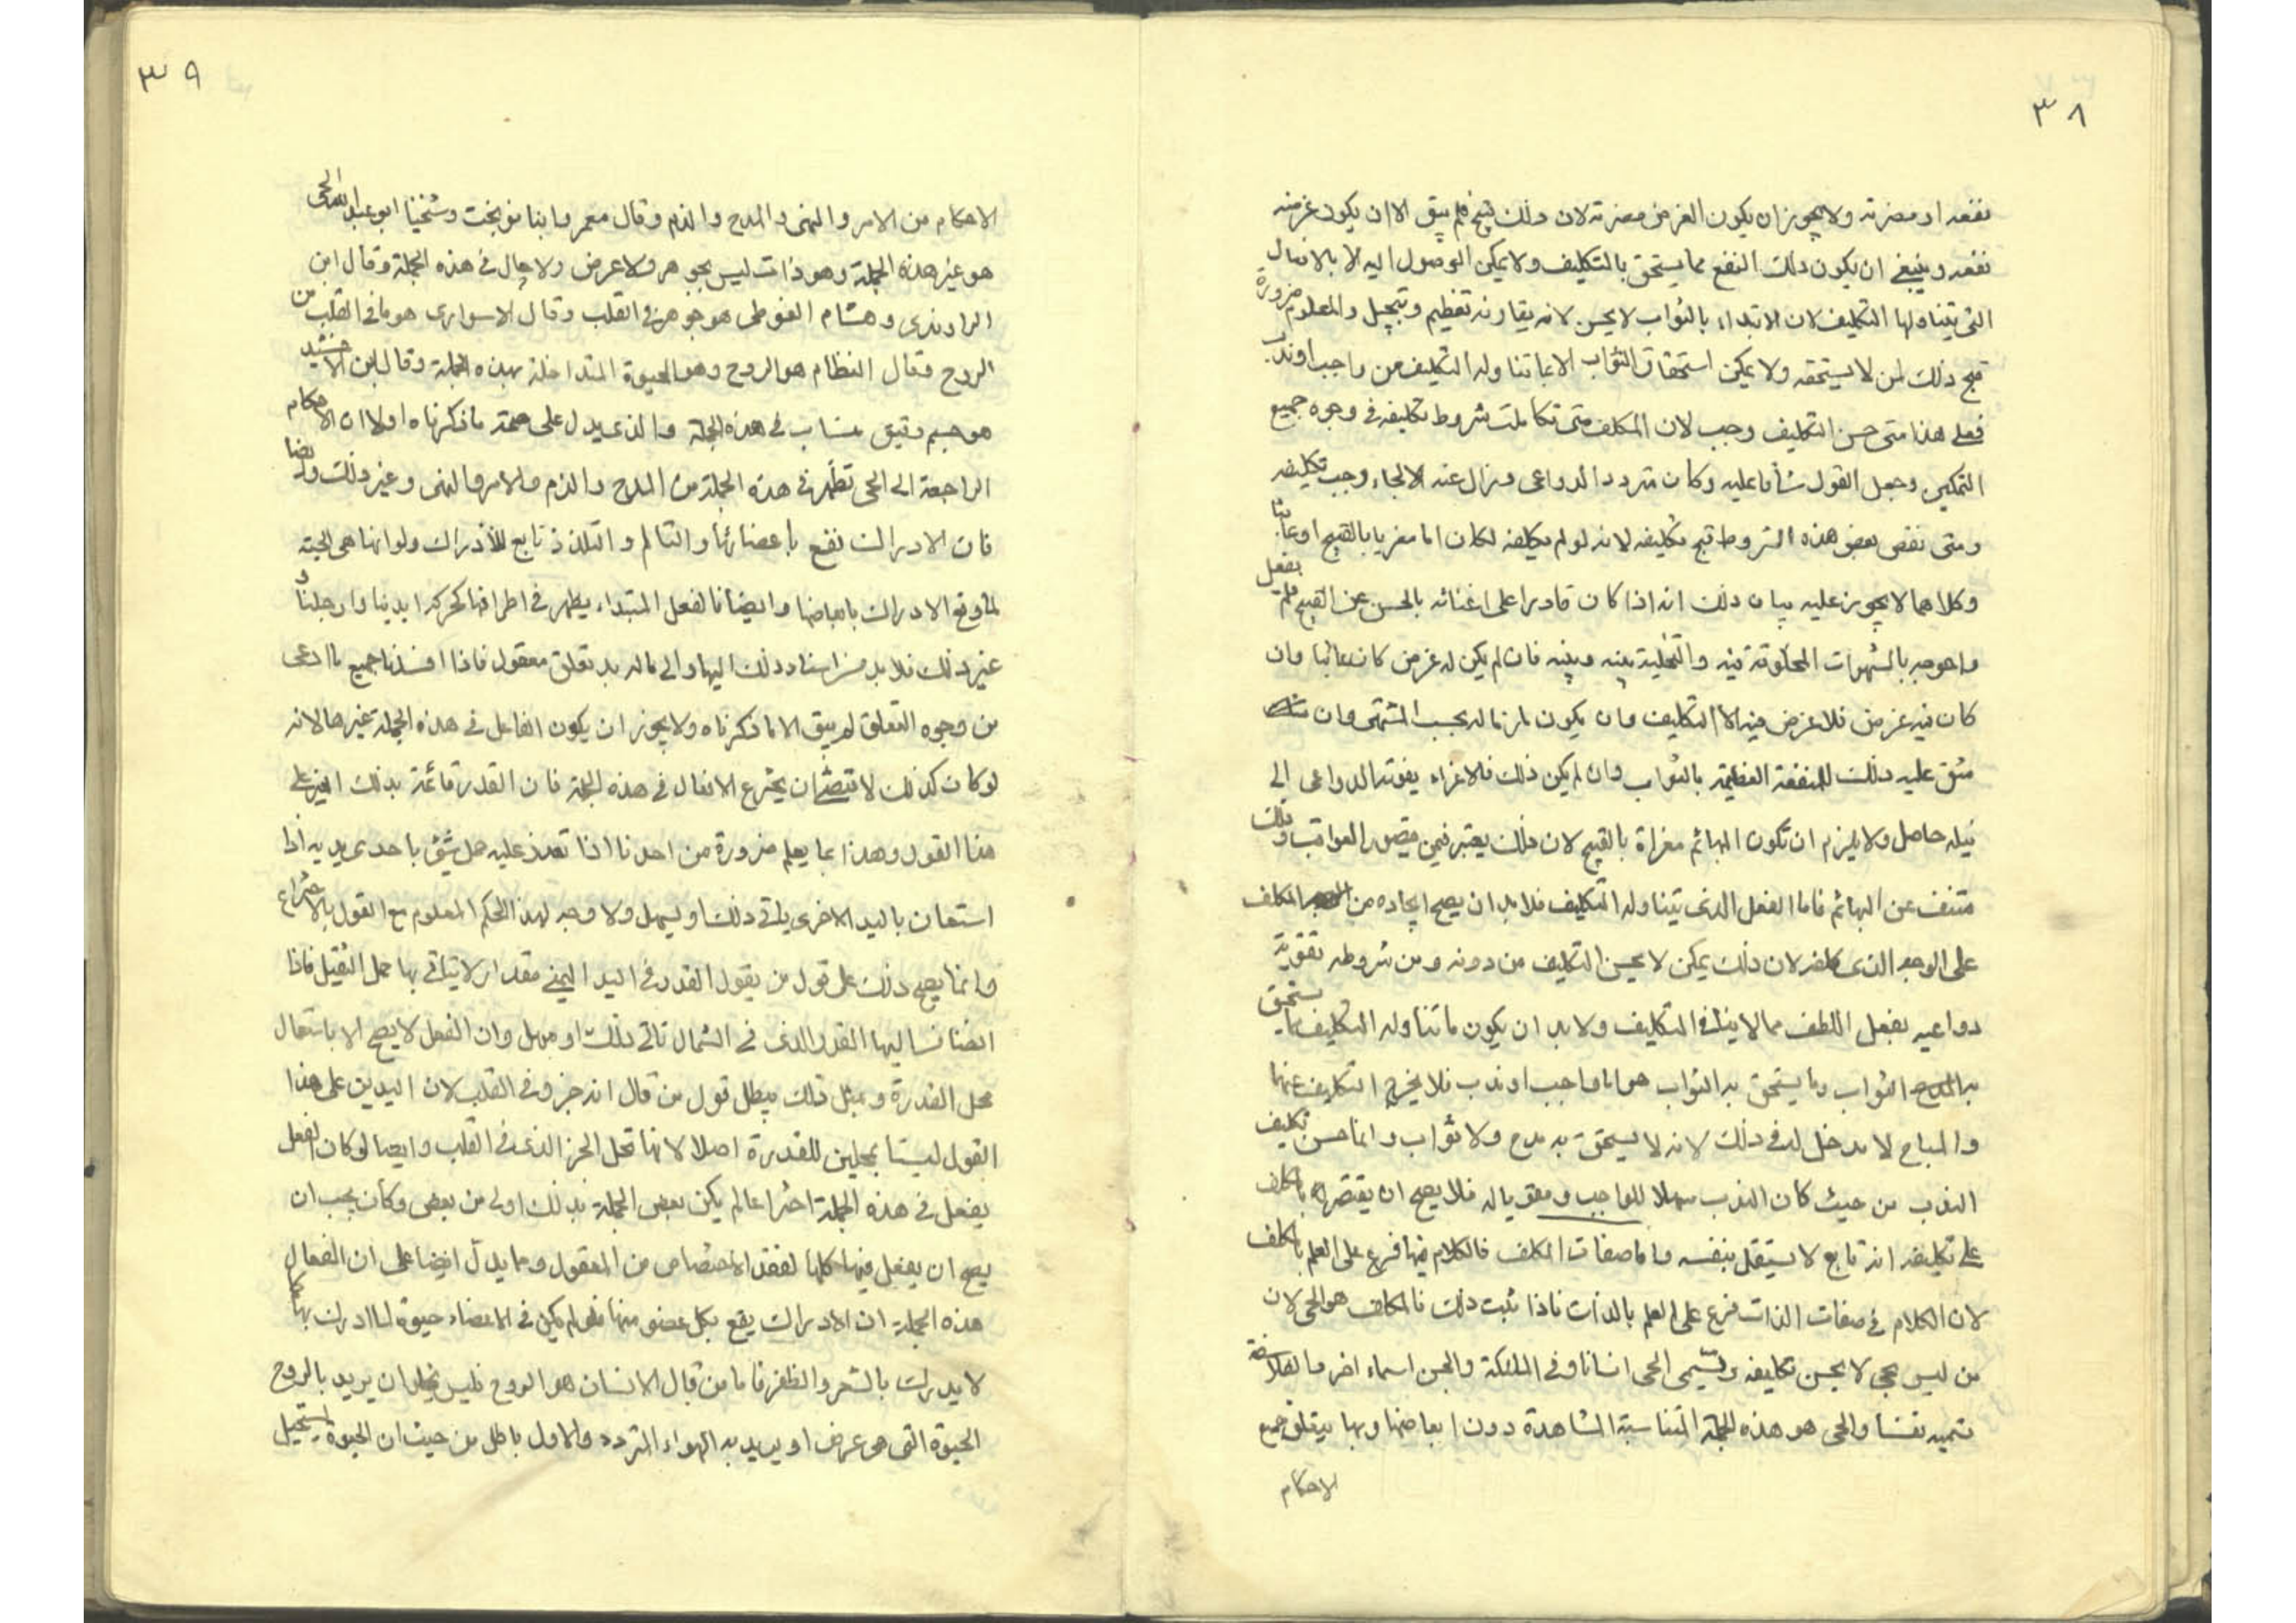 ٣٨
نفعه او مضرته ولا يجوز ان يكون الغرض مضرته لان ذلك قبيح فلم يبق الا ان يكون غرضه
نفعه وينبغي ان يكون ذلك النفع مما يستحق بالتكليف ولا يمكن الوصول اليه الا بالافعال
التى يتناولها التكليف لان الابتداء بالثواب لا يحسن لانه يقارنه تعظيم وتبجيل والمعلوم ضرورة
قبح ذلك لمن لا يستحقه ولا يمكن استحقاق الثواب الا بما تناوله التكليف من واجب او ندب
فعلى هذا متى حسن التكليف وجب لان المكلف متى تكاملت شروط تكليفه فى وجوه جميع
التمكين وجعل القول شاقا عليه وكان متردد الدواعى وزال عنه الالجاء وجب تكليفه
ومتى نقص بعض هذه الشروط قبح تكليفه لانه لو لم يكلفه لكان اما مغريا بالقبيح او عابثا
وكلاهما لا يجوز عليه بيان ذلك انه اذا كان قادرا على اغنائه بالحسن عن القبيح فلم يفعل
واحوجه بالشهوات المخلوقة فيه والتخلية بينه وبينه فان لم يكن له غرض كان عابثا وان
كان فيه غرض فلا غرض فيه الا التكليف وان يكون لازما له بحسب المشتهى وان
شق عليه ذلك للمنفعة العظيمة بالثواب وان لم يكن ذلك فالاغراء يفوته الدواعى الى
نيله حاصل ولا يلزم ان تكون البهائم مغراة بالقبيح لان ذلك يعتبر فيمن يتصور العواقب وذلك
منتف عن البهائم فاما الفعل الذى يتناوله التكليف فلا بد ان يصح ايجاده من المكلف
على الوجه الذى كلفه لان ذلك يمكن لا يحسن التكليف من دونه ومن شروطه تقوية
دواعيه بفعل اللطف مما لا ينافى التكليف ولا بد ان يكون ما تناوله التكليف مما يستحق
به المدح الثواب وما يستحق به الثواب هو اما واجب او ندب فلا يخرج التكليف عنهما
والمباح لا مدخل له فى ذلك لانه لا يستحق به مدح ولا ثواب وانما حسن تكليف
الندب من حيث كان الندب مسهلا للواجب ومقويا له فلا يصح ان يقتصر بالمكلف
على تكليفه انه تابع لا يستقل بنفسه واما صفات المكلف فالكلام فيها فرع على العلم بالمكلف
لان الكلام فى صفات الذات فرع على العلم بالذات فاذا ثبت ذلك فالمكلف هو الحى لان
من ليس بحى لا يحسن تكليفه ويسمى الحى انسانا وفى الملئكة والجن اسماء اخر والفلاسفة
تسميه نفسا والحى هو هذه الجملة المتناسبة المشاهدة دون ابعاضها وبها يتعلق جميع
الاحكام
٣٩
الاحكام من الامر والنهى والمدح والذم وقال معمر وابنا نوبخت وشيخنا ابو عبد الله الحى
هو غير هذه الجملة وهو ذات ليس بجوهر ولا عرض ولا حال فى هذه الجملة وقال ابن
الراوندى وهشام الفوطى هو جوهر فى القلب وقال الاسوارى هو ما فى القلب من
الروح وقال النظام هو الروح وهو الحيوة المتداخلة بهذه الجملة وقال ابن الاخشيد
هو جسم رقيق منساب فى هذه الجملة والذى يدل على صحة ما ذكرناه اولا ان الاحكام
الراجعة الى الحى تظهر فى هذه الجملة من المدح والذم والامر والنهى وغير ذلك وايضا
فان الادراك يقع باعضائها والتالم والتلذذ تابع للادراك ولو انها هى الحية
لما وقع الادراك بابعاضها وايضا فالفعل المبتداء يظهر فى اطرافها كحركة ايدينا وارجلنا و
غير ذلك فلا بد من اسناد ذلك اليها والى ما له بد تعلق معقول فاذا افسدنا جميع ما ادعى
من وجوه التعلق لم يبق الا ما ذكرناه ولا يجوز ان يكون الفاعل فى هذه الجملة غيرها لانه
لو كان كذلك لاقتضى ان يخترع الافعال فى هذه الجملة فان القدر قائمة بذلك الغير على
هذا القول وهذا مما يعلم ضرورة من احدنا اذا تعذر عليه حمل شئ باحدى يديه اذا
استعان باليد الاخرى ياتى ذلك او يسهل ولا وجه لهذا الحكم المعلوم مع القول بالاختراع
وانما يصح ذلك على قول من يقول القدر فى اليد اليمنى مقدار لا يتاتى بها حمل الثقيل فاذا
انضاف اليها القدر الذى فى الشمال تاتى ذلك او سهل وان الفعل لا يصح الا باستعمال
محل القدرة وبمثل ذلك يبطل قول من قال انه جزء فى القلب لان اليدين على هذا
القول ليستا بمحلين للقدرة اصلا لانها تحل الجزء الذى فى القلب وايضا لو كان الفعل
يفعل فى هذه الجملة اختراعا لم يكن بعض الجملة بذلك اولى من بعض وكان يجب ان
يصح ان يفعل فيها كلها لفقد الاختصاص من المعقول ومما يدل ايضا على ان الفعال
هذه الجملة ان الادراك يقع بكل عضو منها فلو لم يكن فى الاعضاء حيوة لما ادرك بها كما
لا يدرك بالشعر والظفر فاما من قال الانسان هو الروح فليس يخلو ان يريد بالروح
الحيوة التى هى عرض او يريد به الهواء المتردد والاول باطل من حيث ان الحيوة يستحيل